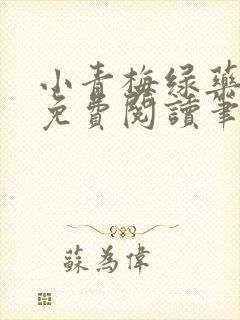 小青梅绿药
免費閱讀筆
蘇為偉